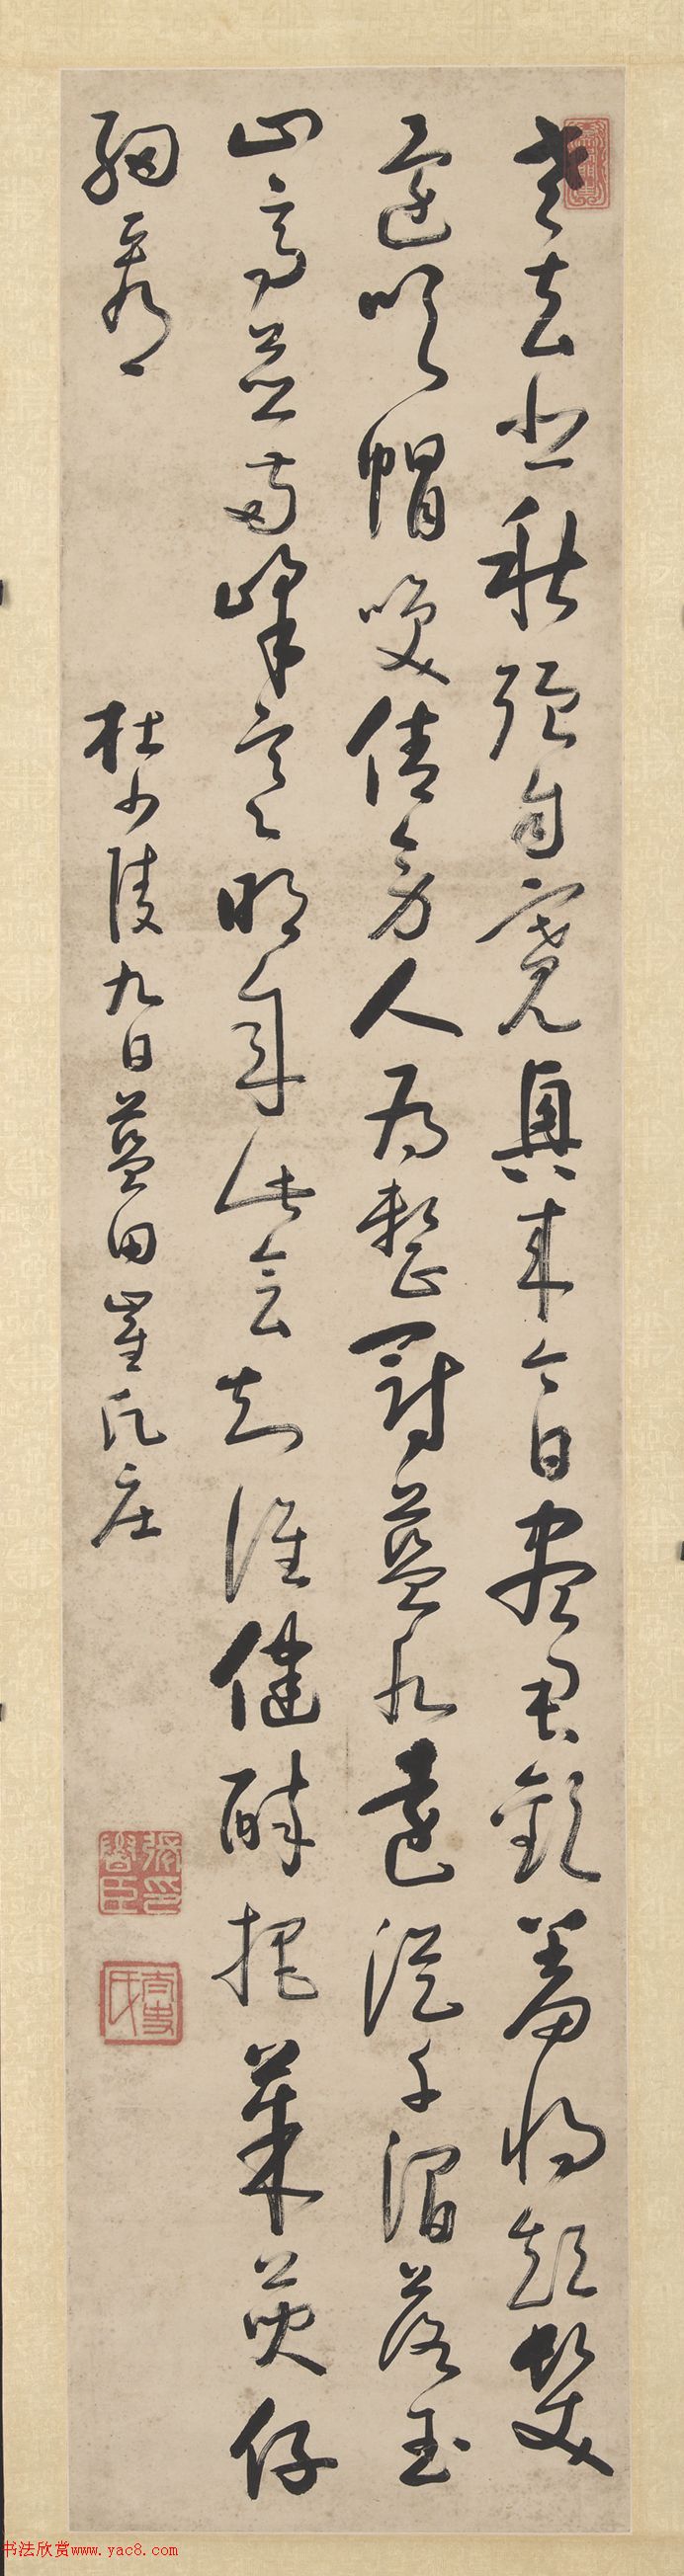 老去悲秋強自寬興來今日盡君歡羞將短髮
還吹帽咲倩旁人為整冠藍水遠從千澗落玉
山高並兩峰寒明年此會知誰健醉把茱萸仔
細看
杜少陵九日藍田崔氏庄
书法欣赏www.yac8.com